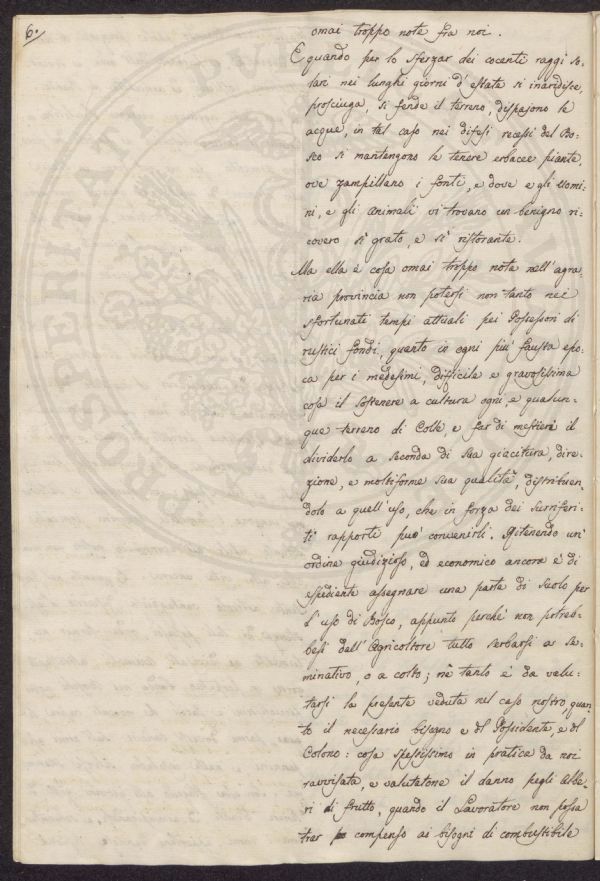 6.
omai troppo note fra noi.
E quando per lo sferzar dei cocenti raggi so-
lari nei lunghi giorni d'estate si inaridisce,
prosciuga, si fende il terreno, dispajono le
acque, in tal caso nei difesi recessi del Bo-
sco si mantengono le tenere erbacee piante,
ove zampillano i fonti, e dove e gli uomi-
ni, e gli animali vi trovano un benigno ri-
covero sì grato, e sì ristorante.
Ma ella è cosa omai troppo nota nell'agra-
ria provincia non potersi non tanto nei
sfortunati tempi attuali pei Possessori di
rustici fondi, quanto in ogni più fausta epo-
ca per i medesimi, difficile e gravosissima
cosa il sostenere a cultura ogni, e qualun-
que terreno di Colle, e far di mestieri il
dividerlo a seconda di sua giacitura, dire-
zione, e moltiforme sua qualità, distribuen-
dolo a quell'uso, che in forza dei surriferi-
ti rapporti può convenirli. Ritenendo un'
ordine giudizioso, ed economico ancora è di
espediente assegnare una parte di suolo per
l'uso di Bosco, appunto perché non potreb-
besi dall'Agricoltore tutto serbarsi a se-
minativo, o a colto; nè tanto è da valu-
tarsi la presente veduta nel caso nostro, quan-
to il necessario bisogno e del Possidente, e del
Colono: cosa spessissimo in pratica da noi
ravvisata, e valutatone il danno pegli Albe-
ri di frutto, quando il Lavoratore non possa
trar compenso ai bisogni di combustibile
PROSPERITATI PUBLICAE